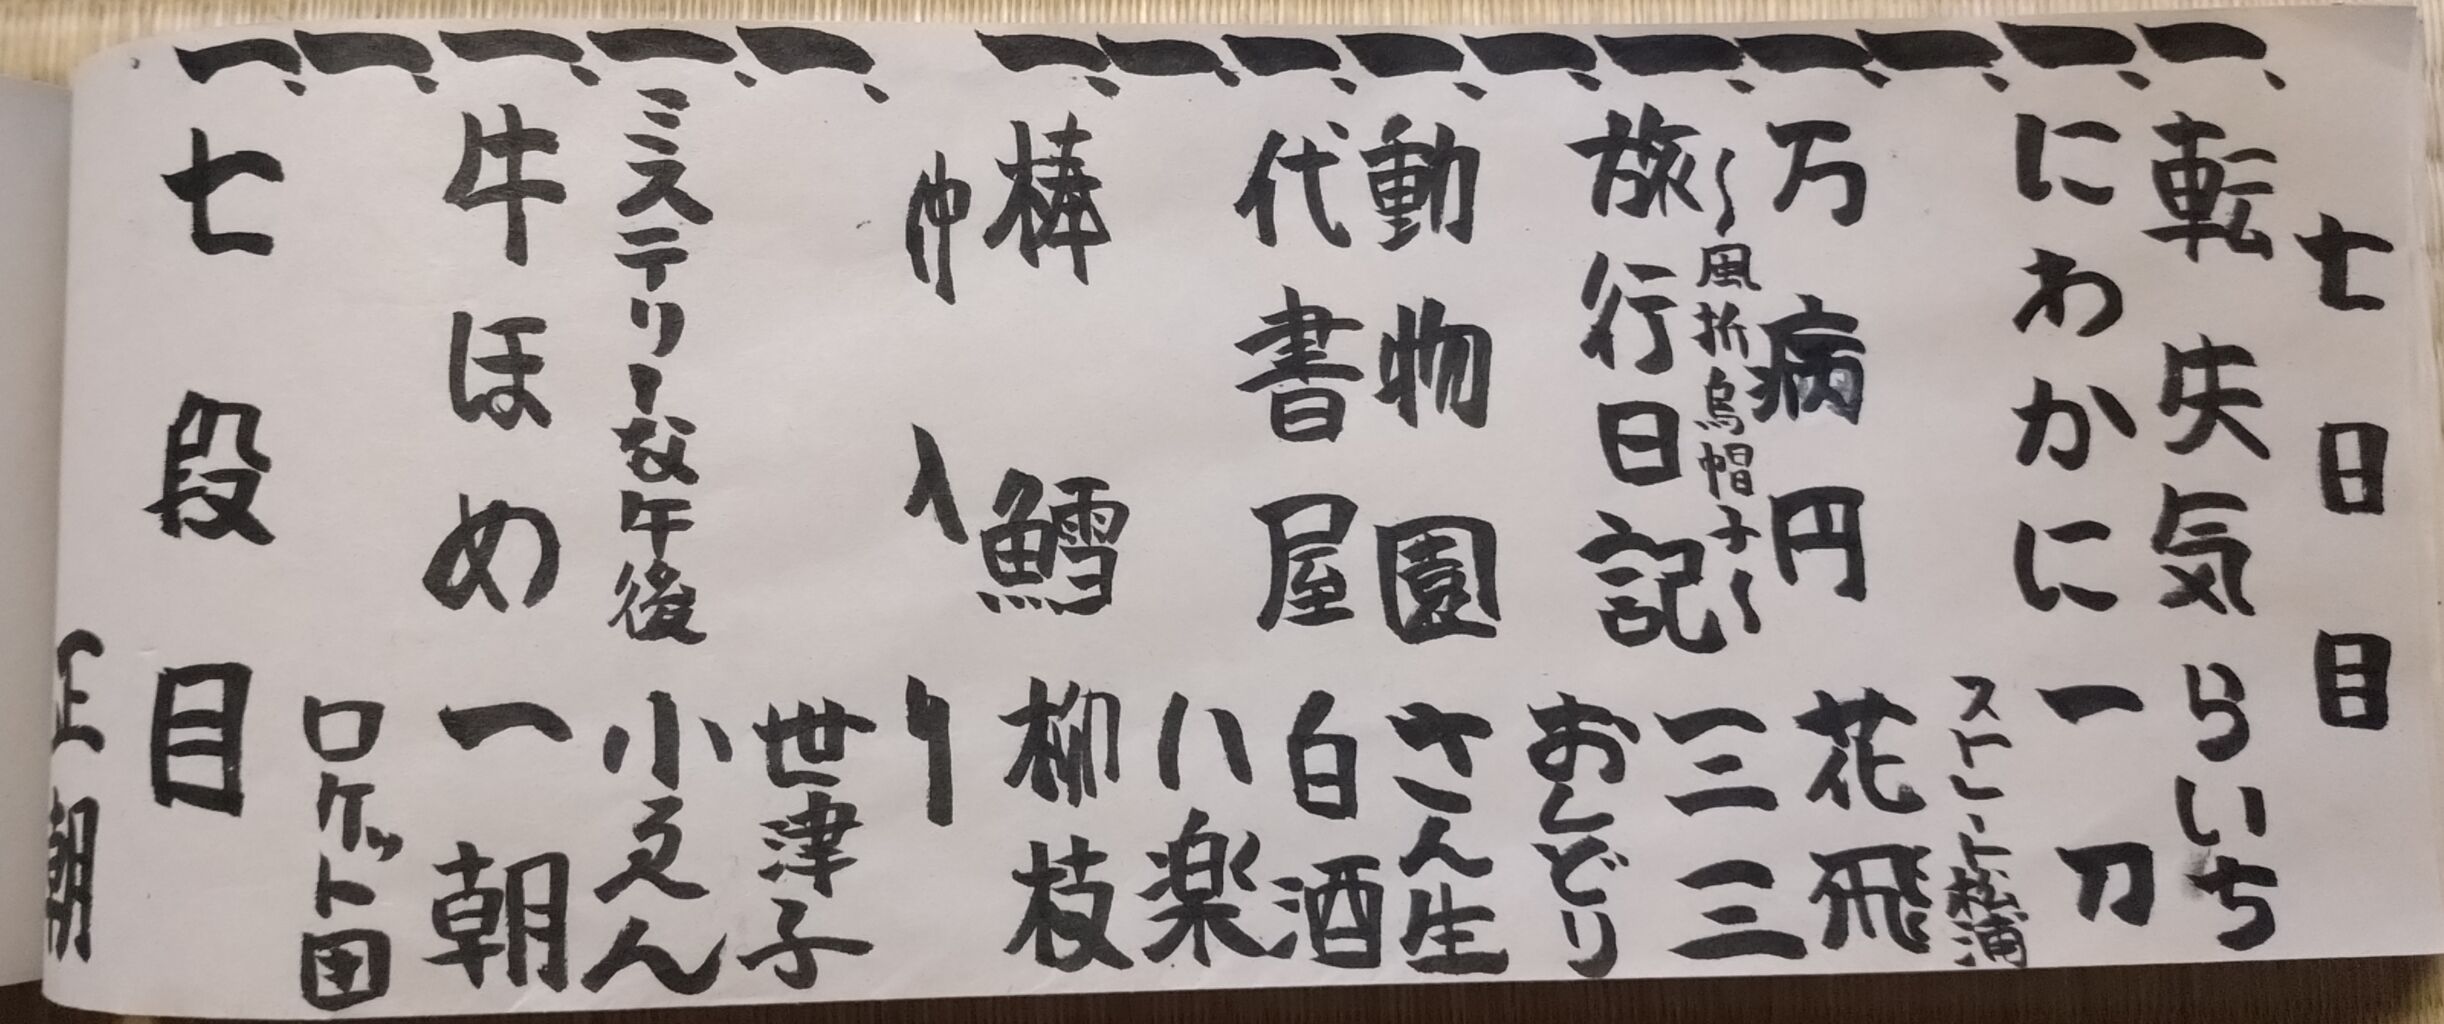 七日目
一、転失気 らいち
一、にわかに 一刀
一、ストレート松浦
一、万病円 花飛
〜風折烏帽子〜
一、旅行日記 三三
一、おしどり
一、動物園 さん生
一、代書屋 白酒
一、八楽
一、棒鱈 柳枝
仲入り
一、世津子
一、ミステリーな午後 小ゑん
一、牛ほめ 一朝
一、ロケット団
一、七段目 正朝